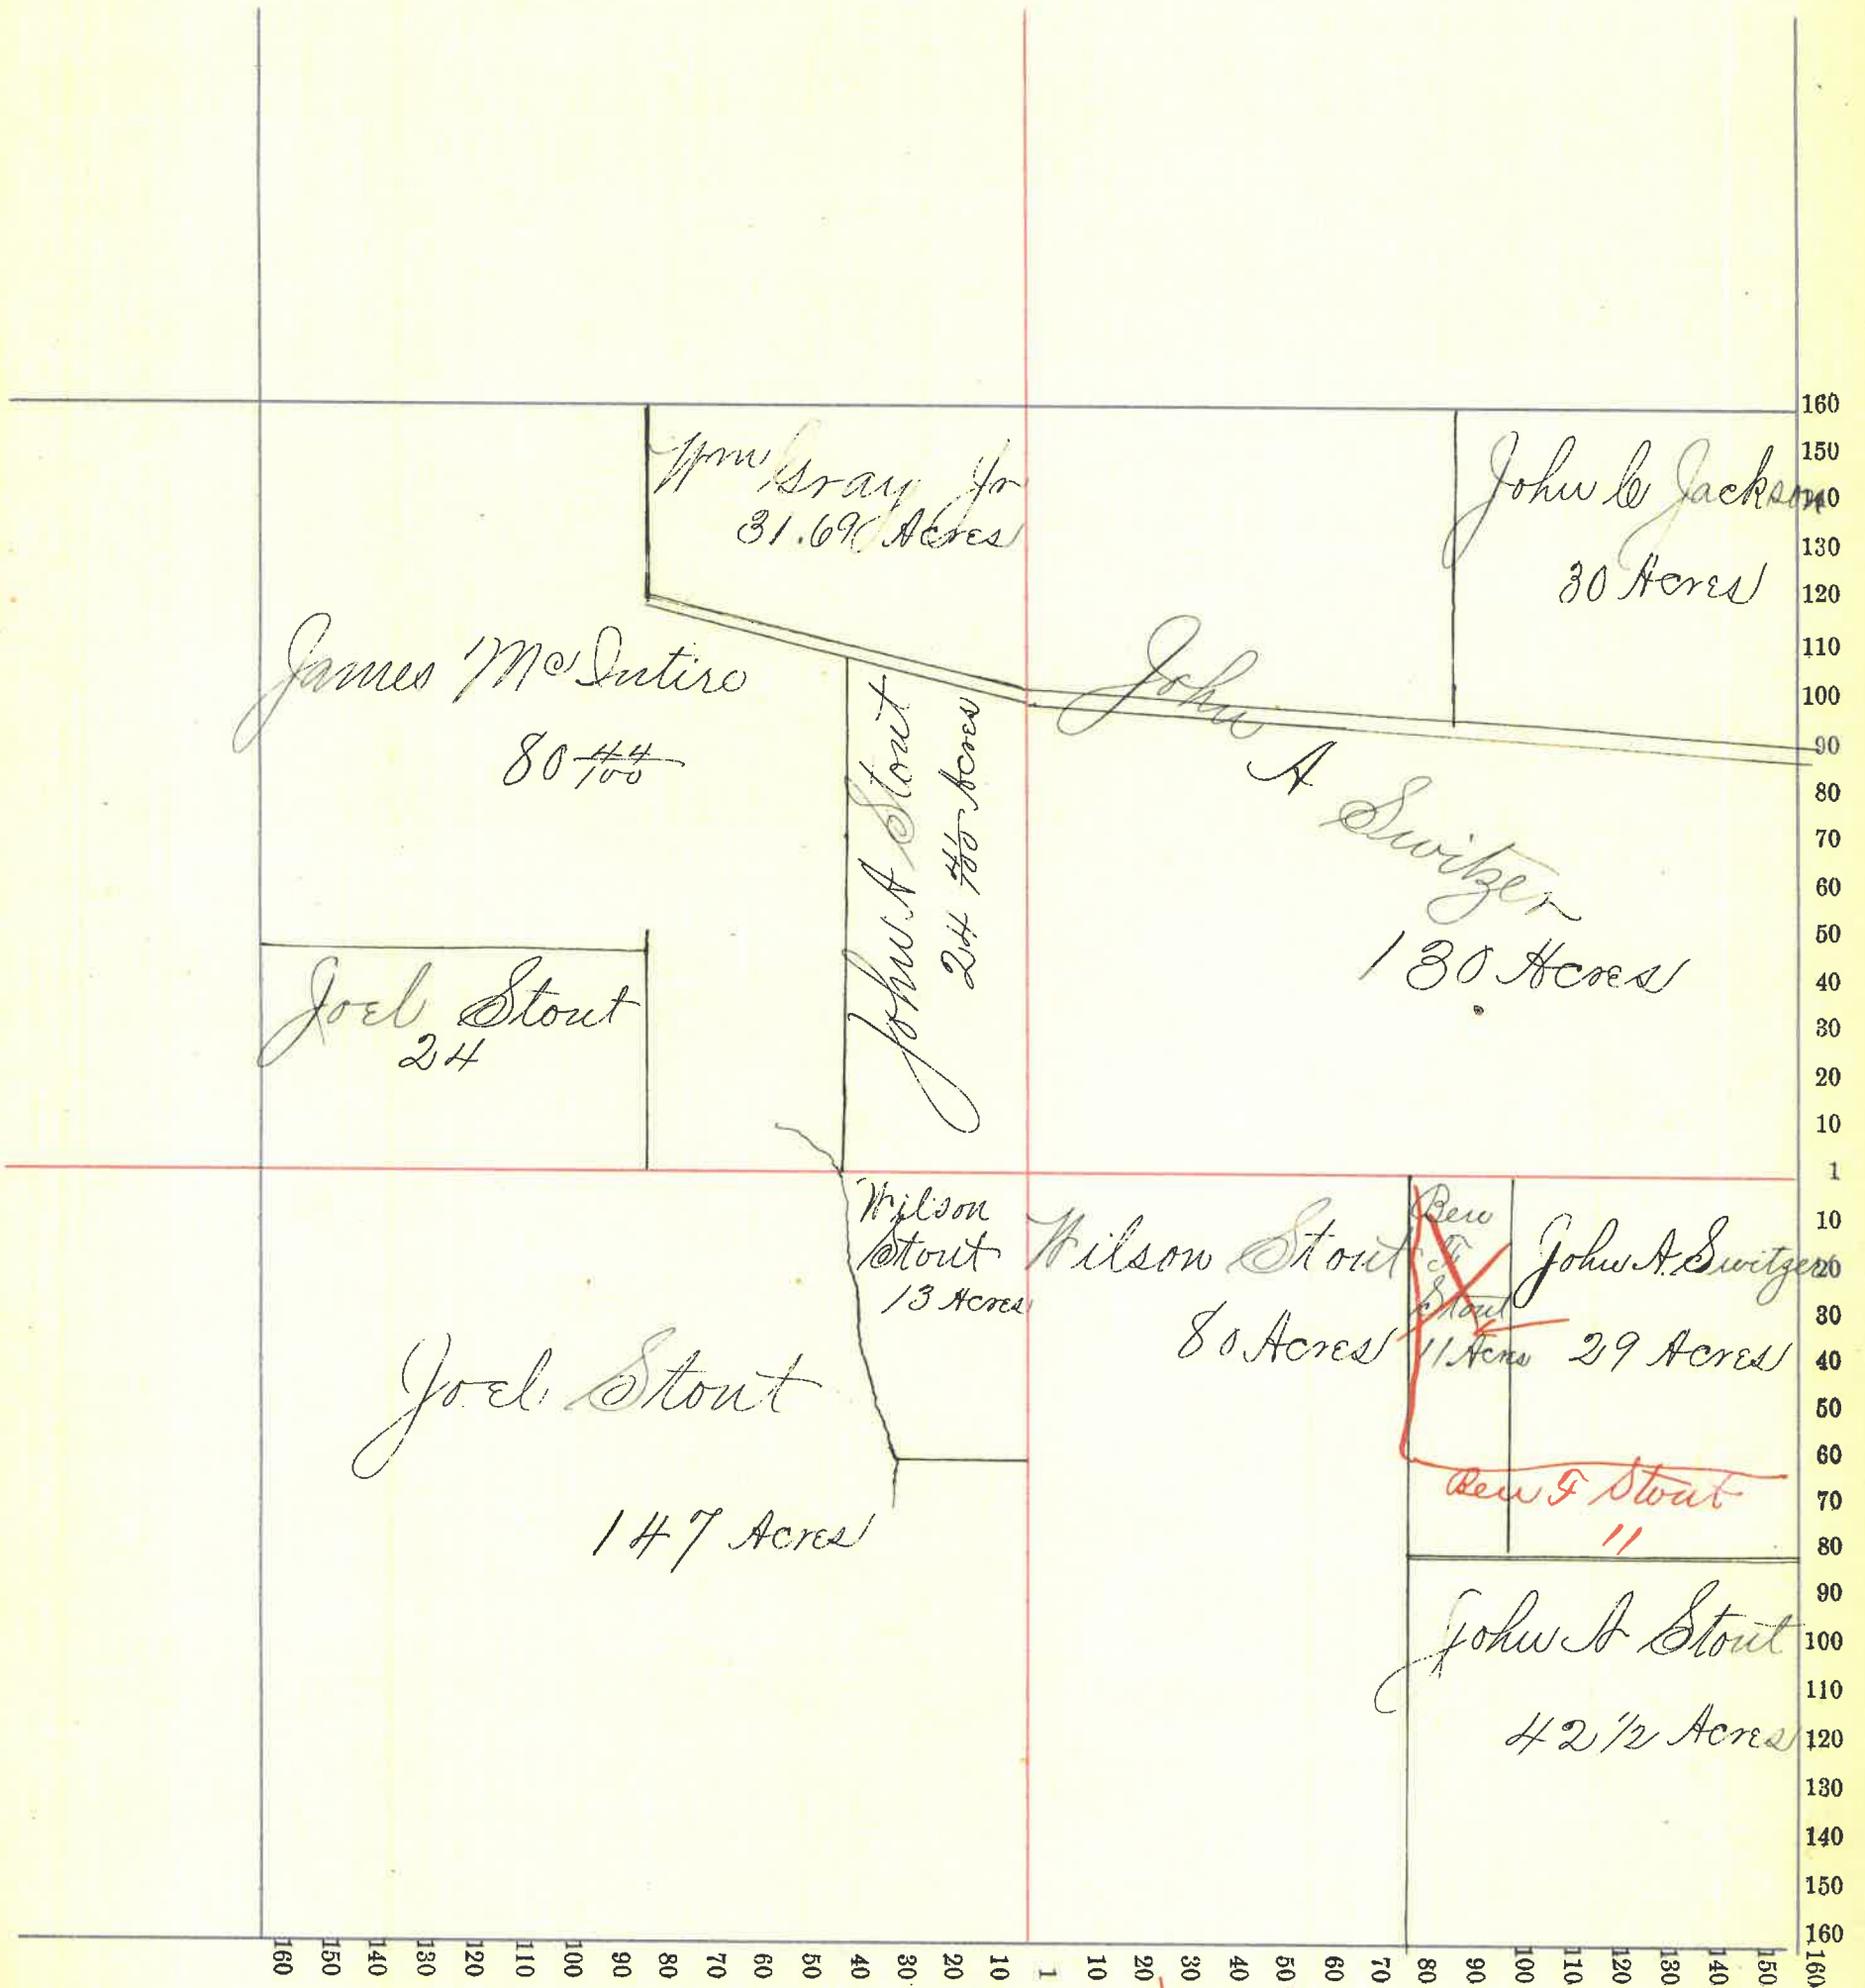 Wm Gray Jr
31.69 Acres
John C Jackson
30 Acres
James McIntire
80 44/100
John A Stout
24 41/100 Acres
John A Switzer
130 Acres
Joel Stout
24
Wilson
Stout
13 Acres
Wilson Stout
80 Acres
Ben
F
Stout
11 Acres
John A. Switzer
29 Acres
Joel Stout
147 Acres
Ben F Stout
11
John A Stout
42 1/2 Acres
160
150
140
130
120
110
100
90
80
70
60
50
40
30
20
10
1
10
20
30
40
50
60
70
80
90
100
110
120
130
140
150
160
160 150 140 130 120 110 100 90 80 70 60 50 40 30 20 10 1 10 20 30 40 50 60 70 80 90 100 110 120 130 140 150 160